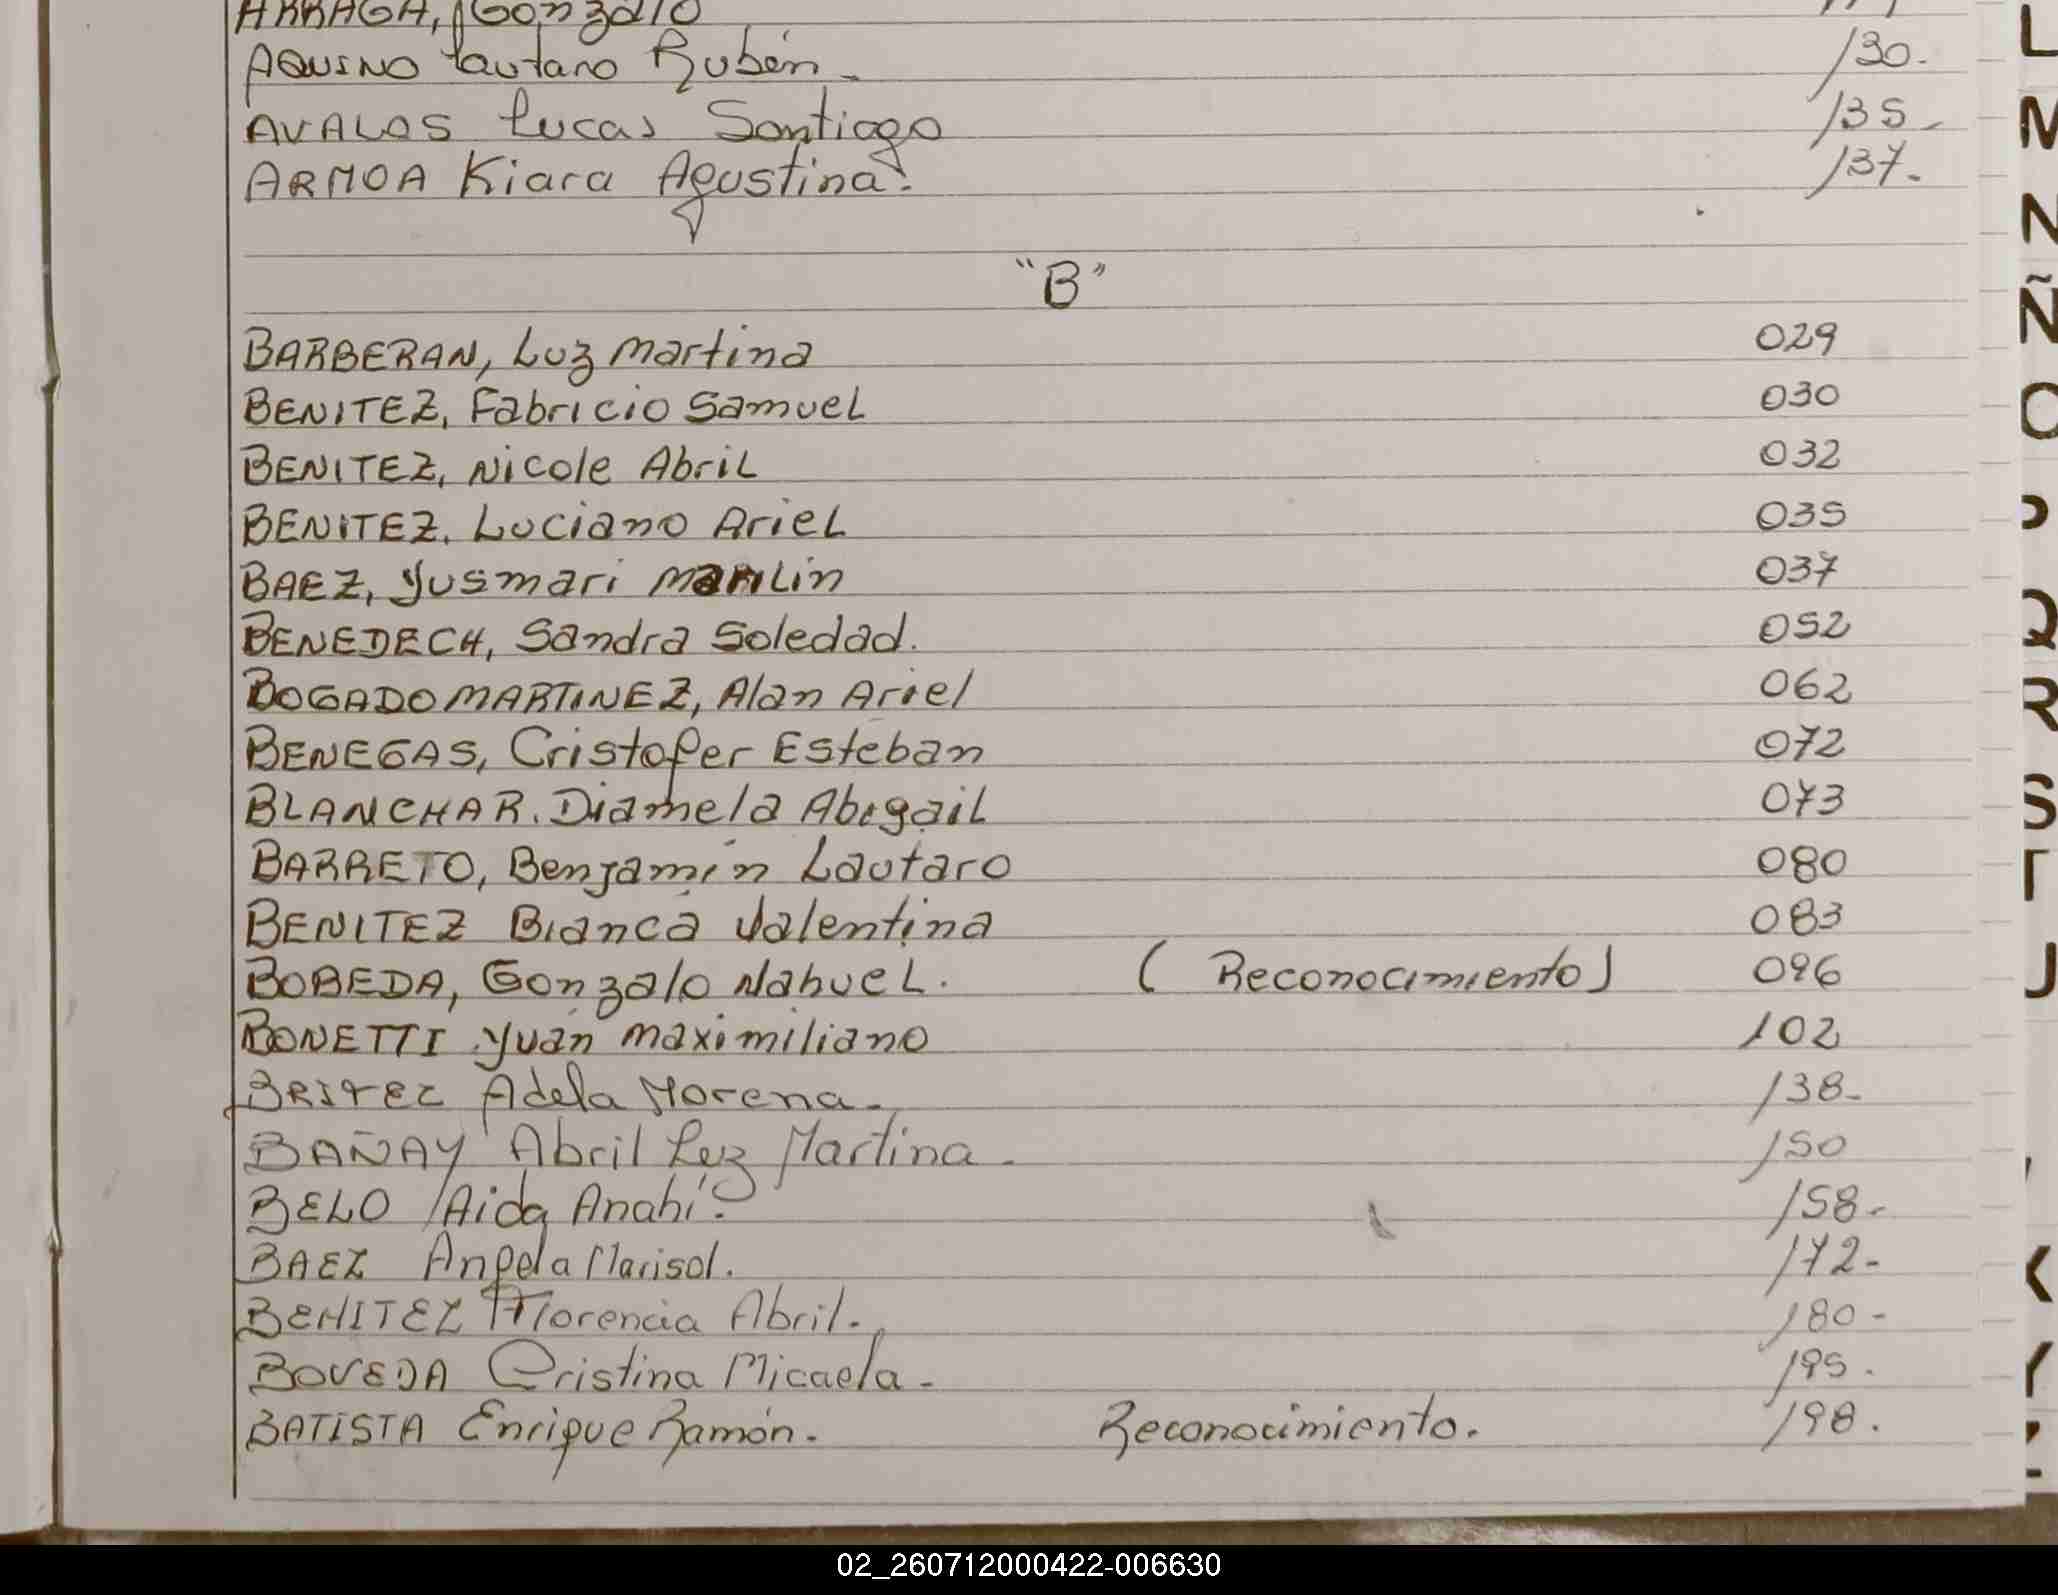 ARRAGA, Gonzalo
AQUINO Lautaro Rubén. 130.
AVALOS Lucas Santiago 135.
ARMOA Kiara Agustina. 137.
"B"
BARBERAN, Luz Martina 029
BENITEZ, Fabricio Samuel 030
BENITEZ, Nicole Abril 032
BENITEZ, Luciano Ariel 035
BAEZ, Yusmari Marilin 037
BENEDECH, Sandra Soledad. 052
BOGADO MARTINEZ, Alan Ariel 062
BENEGAS, Cristofer Esteban 072
BLANCHAR. Diamela Abigail 073
BARRETO, Benjamín Lautaro 080
BENITEZ Bianca Valentina 083
BOBEDA, Gonzalo Nahuel. (Reconocimiento) 096
BONETTI Yuán Maximiliano 102
BRITEZ Adela Morena. 138-
BAÑAY Abril Luz Martina. 150
BELO Aida Anahí. 158-
BAEZ Angela Marisol. 172-
BENITEZ Florencia Abril. 180-
BOVEDA Cristina Micaela. 195.
BATISTA Enrique Ramón. Reconocimiento. 198.
L
M
N
Ñ
O
P
Q
R
S
T
U
X
Y
Z
02_260712000422-006630